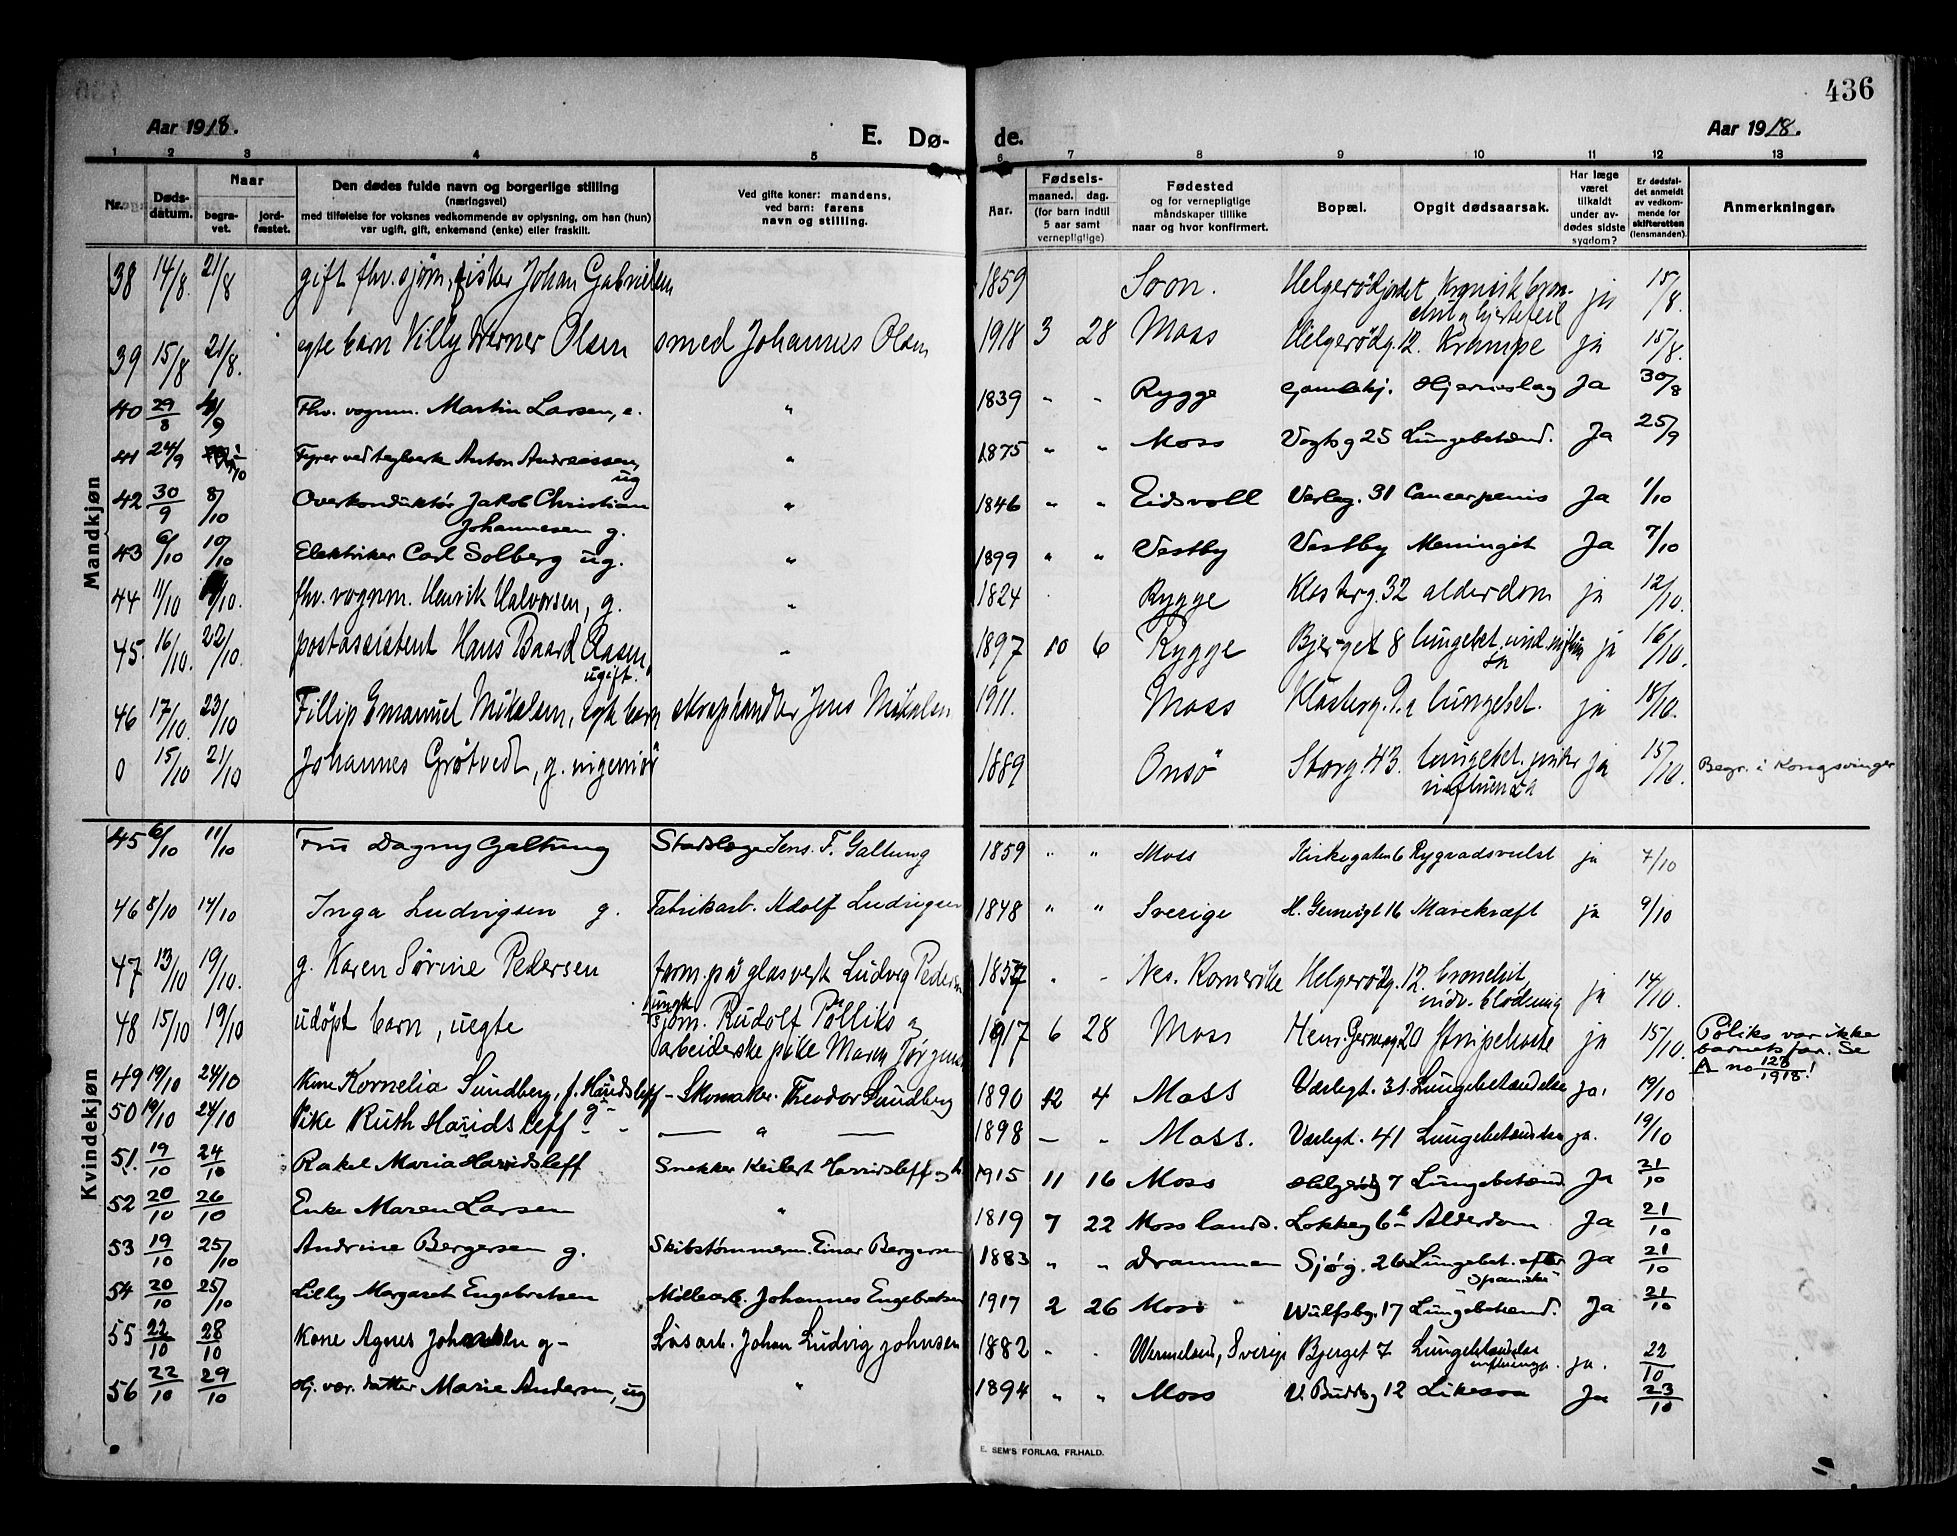 436
Aar 1918. E. Dø- de. Aar 1918.
1 2 3 4 5 6 7 8 9 10 11 12 13
Nr. Døds-datum. Naar begra-vet. jord-fæstet. Den dødes fulde navn og borgerlige stilling (næringsvei) med tilføielse for voksnes vedkommende av oplysning, om han (hun) var ugift, gift, enkemand (enke) eller fraskilt. Ved gifte koner: mandens, ved barn: farens navn og stilling. Aar. Fødsels- maaned. dag. (for barn indtil 5 aar samt vernepligtige) Fødested og for vernepligtige måndskaper tillike naar og hvor konfirmert. Bopæl. Opgit dødsaarsak. Har læge været tilkaldt under av-dødes sidste sygdom? Er dødsfal-det anmeldt av vedkom-mende for skifteretten (lensmanden). Anmerkninger.
Mandkjøn
38 14/8. 21/8 gift fhv. sjøm, fisker Johan Gabrielsen 1859 Soon. Helgerødjordet Kronisk bron-chit og hjertefeil ja 15/8.
39 15/8 21/8. egte barn Villy Werner Olsen smed Johannes Olsen 1918 3 28 Moss Helgerødg. 12. Krampe ja 15/8.
40 29/8 4/9 Fhv. vognm. Martin Larsen, e. " 1839 " " Rygge Gamlehj. Hjerneslag Ja 30/8
41 24/9 1/10 Fyrer ved teglverk Anton Andreassen, ug " 1875 " " Moss Vogts g 25 Lungebetænd. Ja 25/9
42 30/9 8/10 Overkonduktør Jakob Christian Johannesen g. " 1846 " " Eidsvoll Værleg. 31 Cancer penis Ja 1/10
43 6/10 10/10 Elektriker Carl Solberg ug. " 1899 " " Vestby Vestby Meningit Ja 7/10
44 11/10 /10. fhv. vognm. Henrik Halvorsen, g. " 1824 Rygge Klosterg. 32 alderdom ja 12/10.
45. 16/10. 22/10. postassistent Hans Baard Aasen, ugift. " 1897 10 6 Rygge Bjerget 8 lungebet. ja 16/10.
46 17/10. 23/10 Fillip Emanuel Mikalsen, egte barn skraphandler Jens Mikalsen 1911. Moss Klosterg. 9a lungebet. ja 18/10.
0 15/10 21/10 Johannes Grøtvedt, g. ingeniør 1889 Onsø Storg. 43. lungebet. influenza ja 15/10. Begr. i Kongsvinger
Kvindekjøn
45 6/10 11/10 Fru Dagny Galtung Stadslæge Jens. F. Galtung 1859 " " Moss Kirkegaten 6 Rygradsvulst ja 7/10
46 8/10 14/10 Inga Ludvigsen g. Fabrikarb. Adolf Ludvigsen 1848 " " Sverige H. Gernersgt 16 Mavekræft ja 9/10
47 13/10 19/10. g. Karen Sørine Pedersen form. på glasverk Ludvig Pedersen 1857 " " Nes. Romerike Helgerødg. 12. indv. blødning ja 14/10.
48 15/10 19/10 udøpt barn, uegte ungk. sjøm. Rudolf Pølliks og arbeiderske pike Maren Jørgensen 1917 6 28 Moss Henr. Gernersg 20 strupehoste ja 15/10. Pøliks var ikke barnets far. Se A no 128/1918!
49 19/10 24/10 Kone Kornelia Sundberg, f. Haridsleff g - Skomaker. Theodor Sundberg 1890 12 4 Moss Værlegt. 31 Lungebetændelse ja. 19/10
50 19/10 24/10 Pike Ruth Haridsleff - — " — 1898 — " Moss. Værlegt. 41 Lungebetændelse ja. 19/10
51. 19/10 24/10 Rakel Maria Haridsleff Snekker Keilert Haridsleff og h. 1915 11 16 Moss Helgerødg 7 Lungebetænd. Ja 21/10
52 20/10 26/10 Enke Maren Larsen " 1819 7 22 Moss lands. Løkkeg 6b Alderdom Ja 21/10
53 19/10 25/10 Andrine Bergersen g. Skibstømmerm. Einar Bergersen 1883 " " Drammen Sjøg. 26 Lungebet. efter spanske Ja 21/10
54 20/10 25/10 Lilly Margaret Engebretsen Møllearb. Johannes Engebretsen 1917 2 26 Moss Wulfsbg. 17 Lungebetænd. Ja 21/10
55 22/10 28/10 Kone Agnes Johnsen g - Løsarb. Johan Ludvig Johnsen 1882 " " Wermeland, Sverige Bjerget 7 Lungebetændelse influenza. ja. 22/10
56 22/10 29/10 Hj. vær. datter Marie Andersen, ug " 1894 " " Moss V. Buddeg 12 Likesaa Ja 23/10
E. SEM'S FORLAG, FR.HALD.